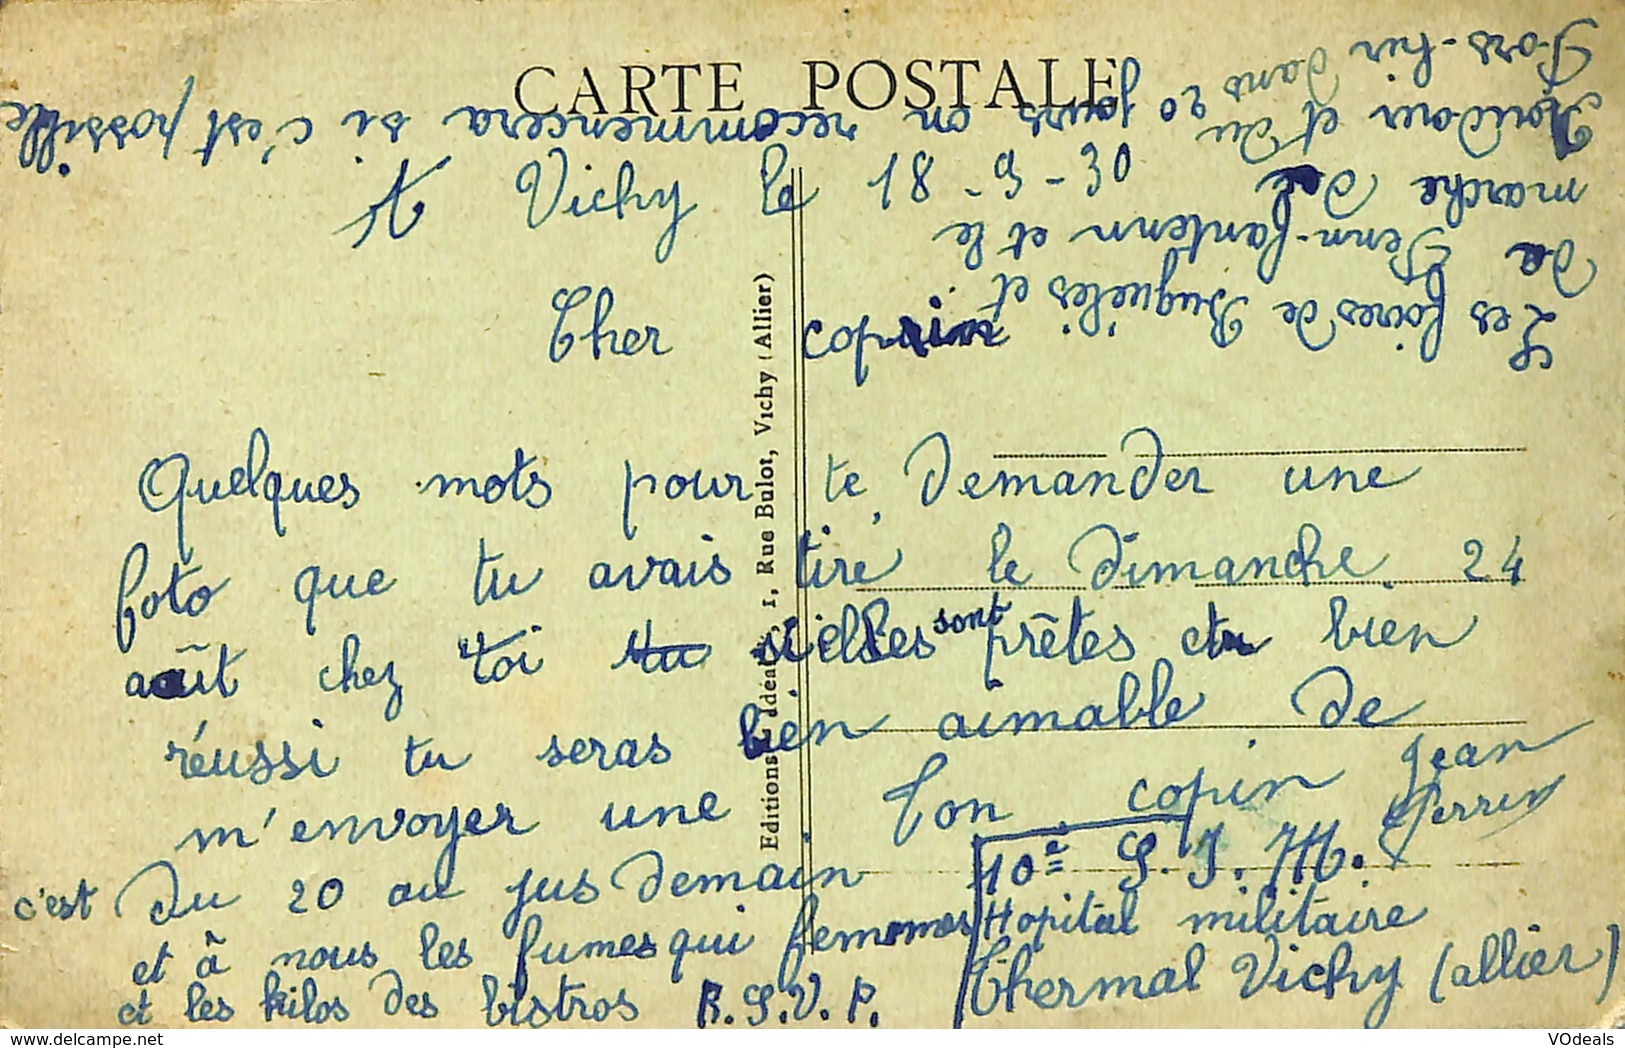 CARTE POSTALE
A Vichy le 18-9-30
Cher copain
Quelques mots pour te demander une
foto que tu avais tire le dimanche 24
août chez toi tu si elles sont prêtes et bien
réussi tu seras bien aimable de
m'envoyer une Ton copin Jean
Perrin
c'est du 20 au jus demain
et à nous les fumes qui
et les kilos des bistros R.S.V.P.
10e S.I.M.
Hopital militaire
Thermal Vichy (allier)
Les foires de Buguélès et
de Penn-fantenn et le
marche de
et du
Pors-hir dans 20 jours on recommencera si c'est possible
Editions Idéales, 1, Rue Bulot, Vichy (Allier)
VOdeals
delcampe.net